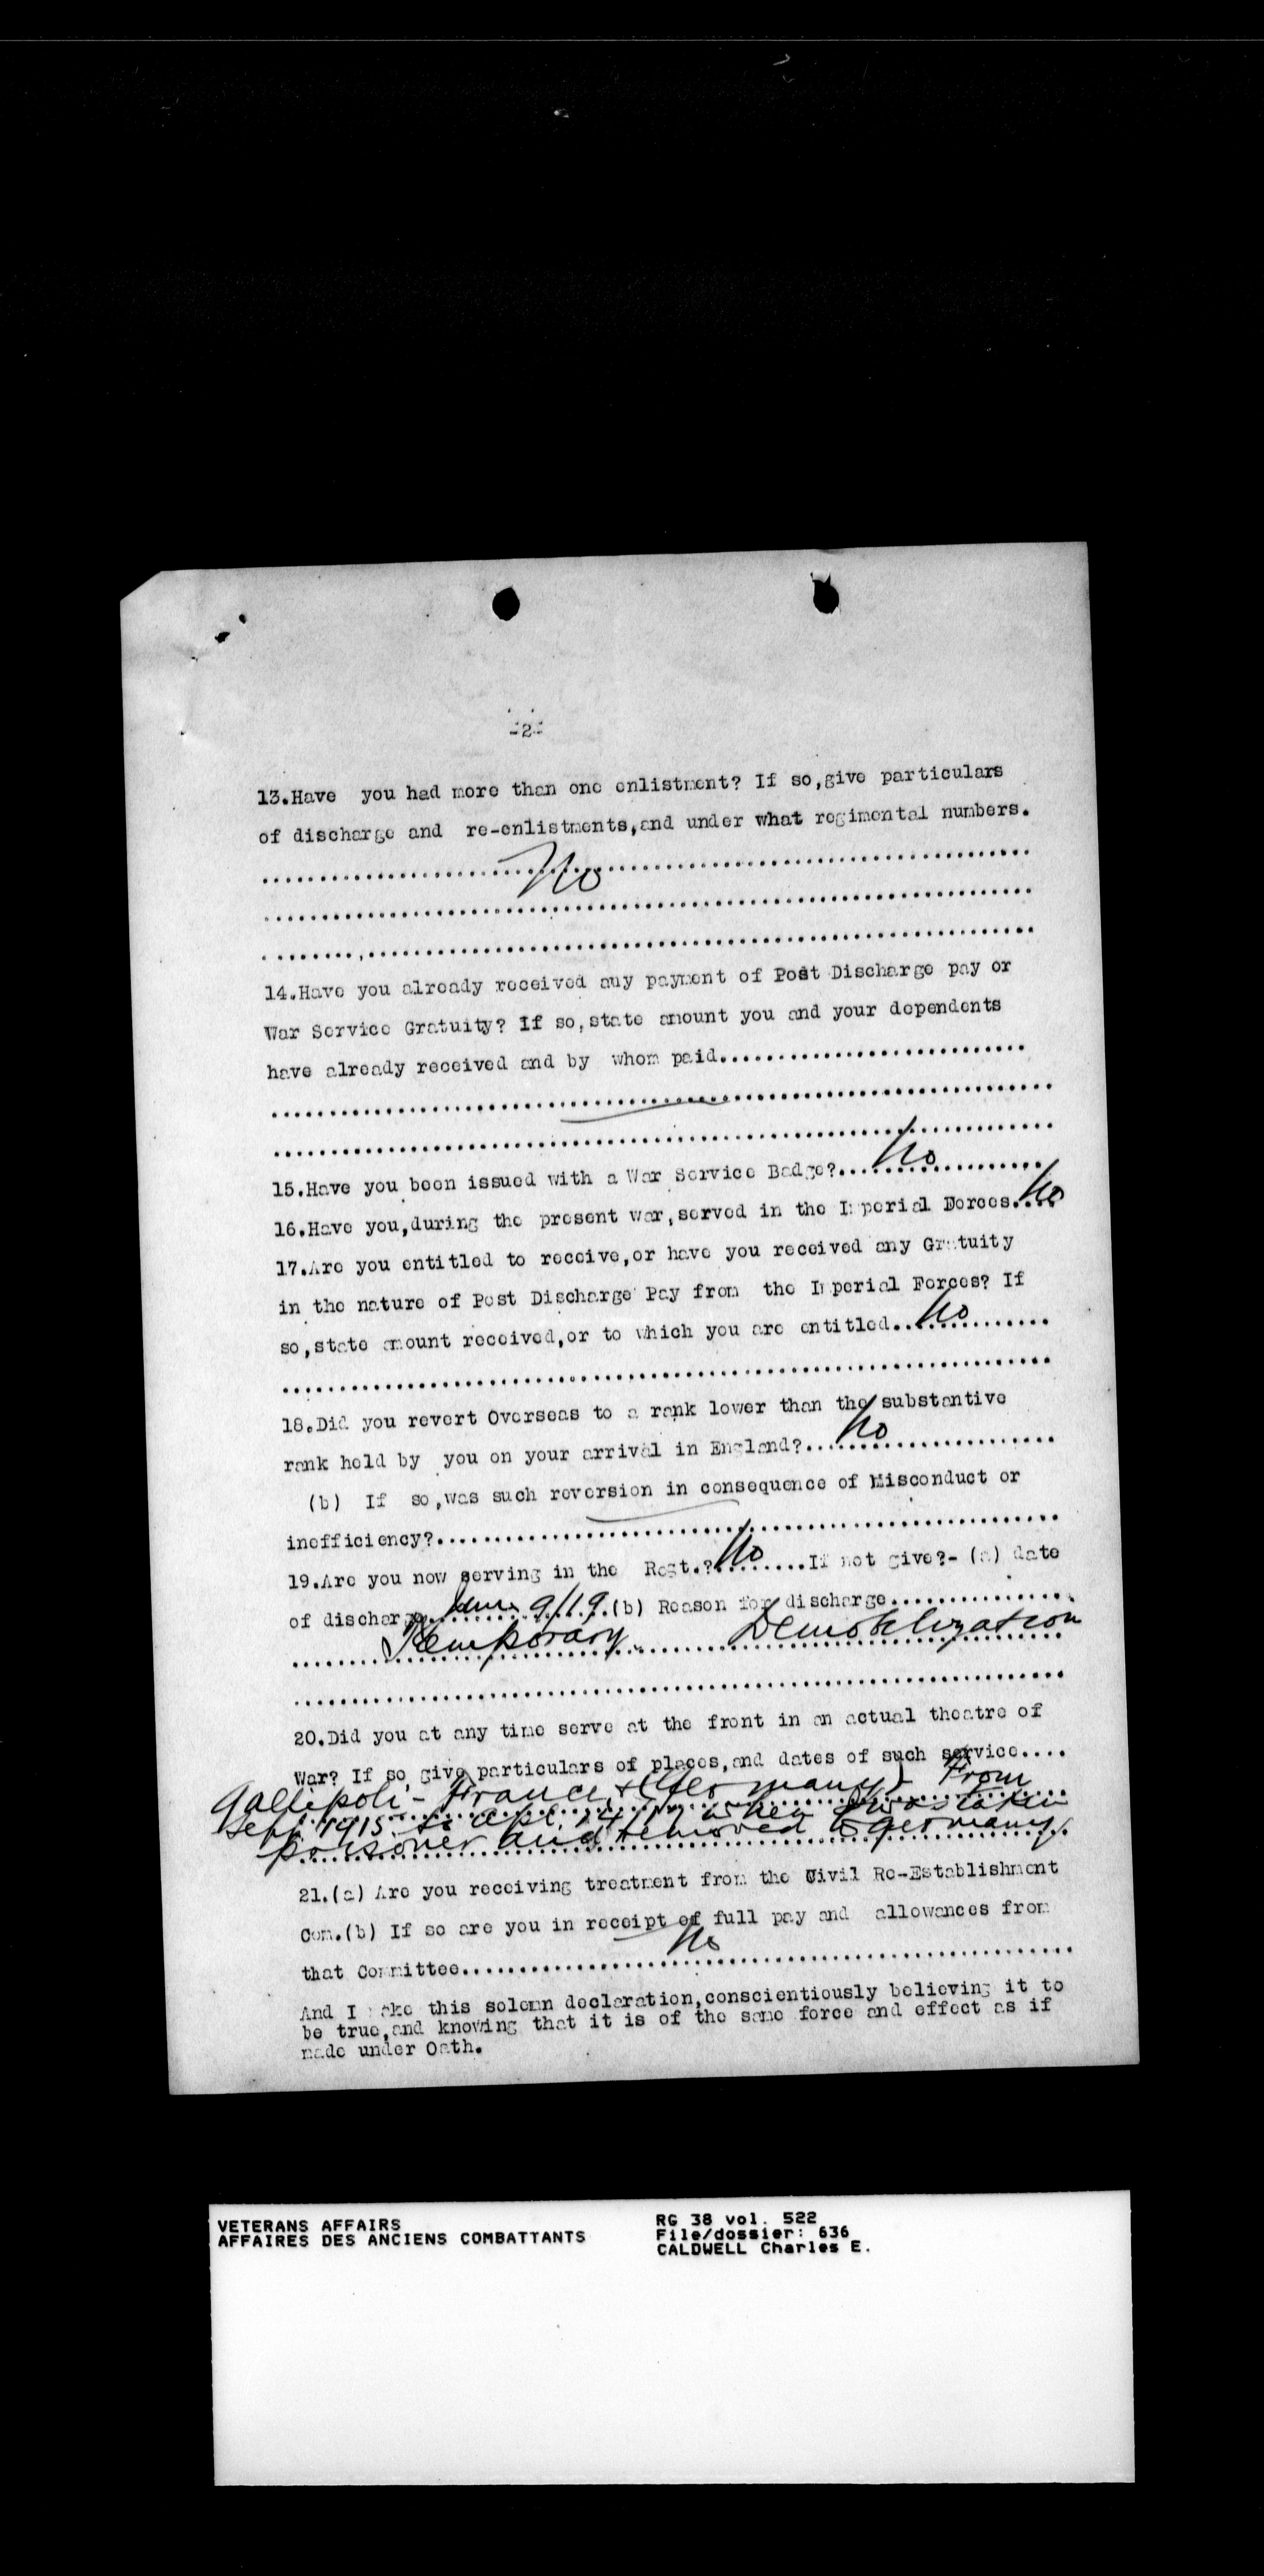 -2-
13.Have you had more than one enlistment? If so,give particulars
of discharge and re-enlistments,and under what regimental numbers.
No
14.Have you already received any payment of Post Discharge pay or
War Service Gratuity? If so,state amount you and your dependents
have already received and by whom paid..........................
15.Have you been issued with a War Service Badge?..... No
16.Have you,during the present war,served in the Imperial Forces.... No
17.Are you entitled to receive,or have you received any Gratuity
in the nature of Post Discharge Pay from the Imperial Forces? If
so,state amount received,or to which you are entitled.. No
18.Did you revert Overseas to a rank lower than the substantive
rank held by you on your arrival in England?.... No
(b) If so,was such reversion in consequence of Misconduct or
inefficiency?....................................................
19.Are you now serving in the Regt.? No ........If not give?-(a) date
of discharge. 9/19.(b) Reason for discharge................
Temporary Demobilization
20.Did you at any time serve at the front in an actual theatre of
War? If so give particulars of places,and dates of such service....
Gallipoli - France, & (Germany) - From
Sept 1915 to Apl. 14/17 when I was taken
prisoner and removed to Germany.
21.(a) Are you receiving treatment from the Civil Re-Establishment
Com.(b) If so are you in receipt of full pay and allowances from
No
that Committee..................................................
And I make this solemn declaration,conscientiously believing it to
be true,and knowing that it is of the same force and effect as if
made under Oath.
VETERANS AFFAIRS
AFFAIRES DES ANCIENS COMBATTANTS
RG 38 vol. 522
File/dossier: 636
CALDWELL Charles E.